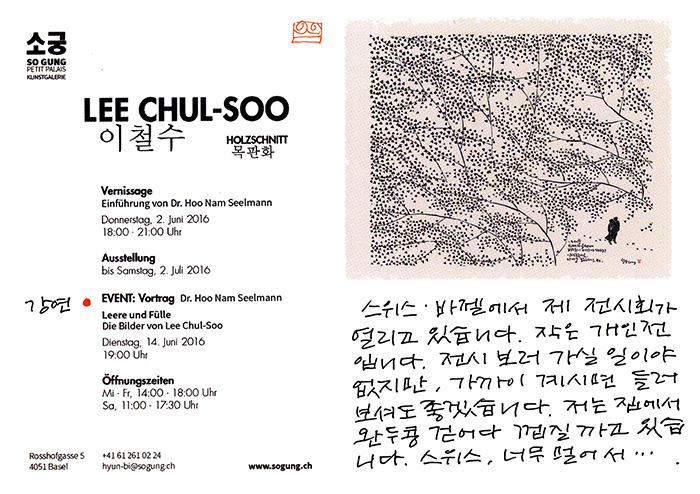 소궁
SO GUNG
PETIT PALAIS
KUNSTGALERIE
LEE CHUL-SOO
이철수
HOLZSCHNITT
목판화
Vernissage
Einführung von Dr. Hoo Nam Seelmann
Donnerstag, 2. Juni 2016
18:00 - 21:00 Uhr
Ausstellung
bis Samstag, 2. Juli 2016
강연 EVENT: Vortrag Dr. Hoo Nam Seelmann
Leere und Fülle
Die Bilder von Lee Chul-Soo
Dienstag, 14. Juni 2016
19:00 Uhr
Öffnungszeiten
Mi - Fr, 14:00 - 18:00 Uhr
Sa, 11:00 - 17:30 Uhr
Rosshofgasse 5
4051 Basel
+41 61 261 02 24
hyun-bi@sogung.ch
www.sogung.ch
스위스·바젤에서 제 전시회가
열리고 있습니다. 작은 개인전
입니다. 전시 보러 가실 일이야
없지만, 가까이 계시면 들러
보셔도 좋겠습니다. 저는 집에서
완두콩 걷어다 껍질 까고 있습
니다. 스위스, 너무 멀어서….